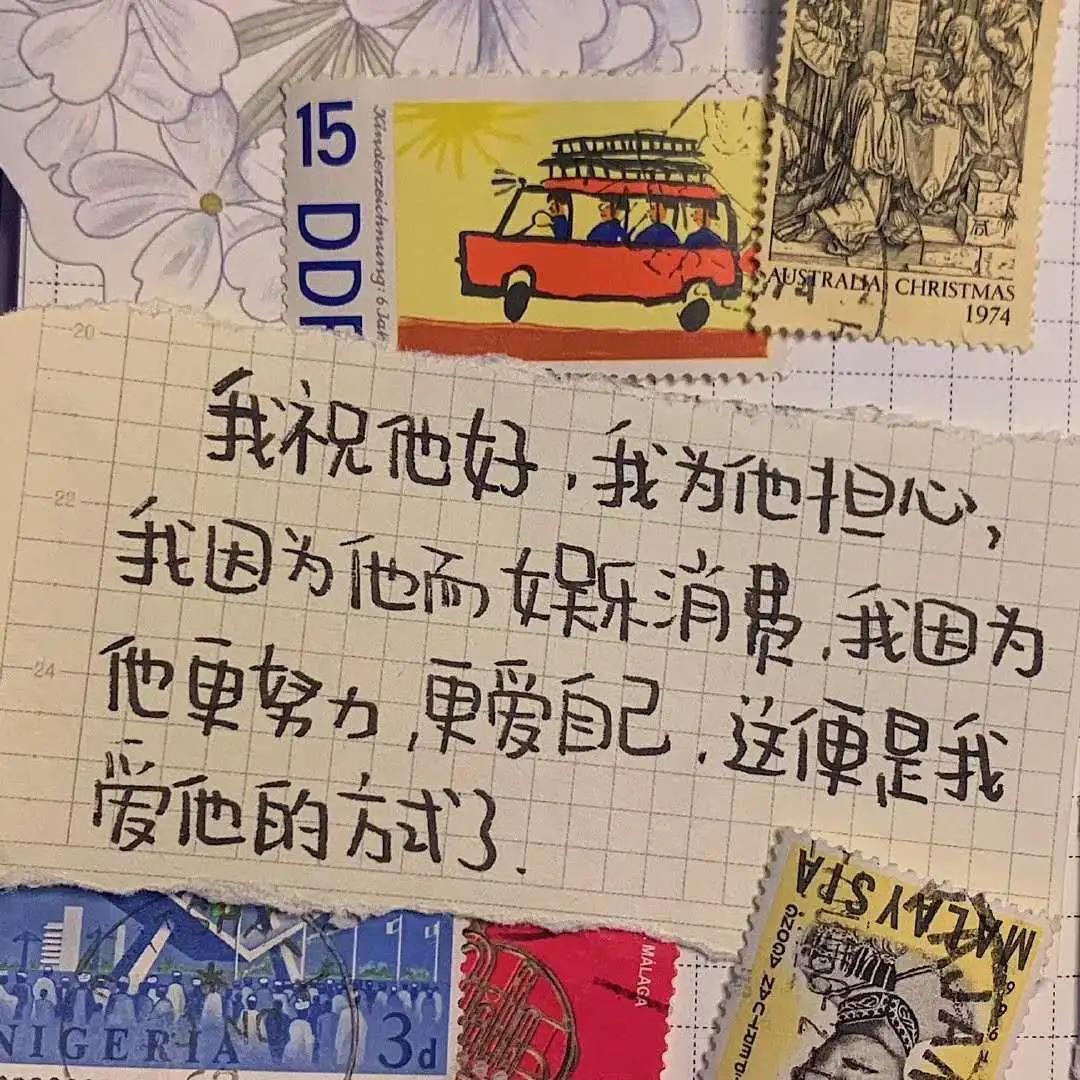 15 DDR
Kinderzeichnung: 6 Jah
AUSTRALIA CHRISTMAS
1974
20
我祝他好，我为他担心，
22
我因为他而娱乐消费，我因为
24
他更努力，更爱自己。这便是我
爱他的方式了.
NIGERIA 3d
MÁLAGA
MALAYSIA